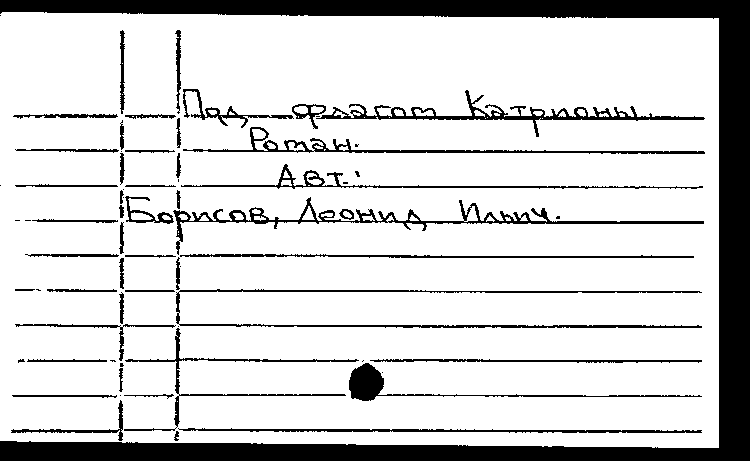 Под флагом Катрионы.
Роман.
Авт.:
Борисов, Леонид Ильич.